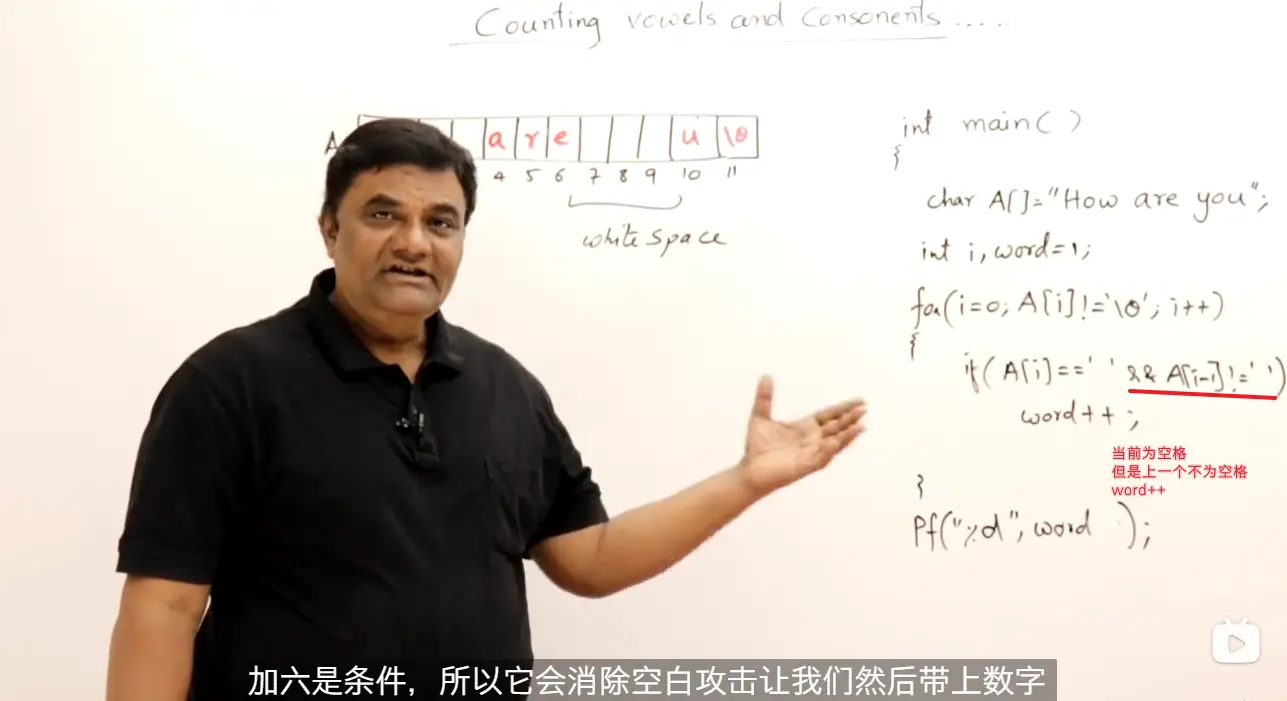 Counting vowels and Consonents .....
A
a r e u \0
4 5 6 7 8 9 10 11
white space
int main( )
{
char A[]="How are you";
int i, word=1;
for(i=0; A[i]!='\0'; i++)
{
if( A[i]==' ' && A[i-1]!=' ')
word++;
当前为空格
但是上一个不为空格
word++
}
Pf("%d", word );
加六是条件，所以它会消除空白攻击让我们然后带上数字